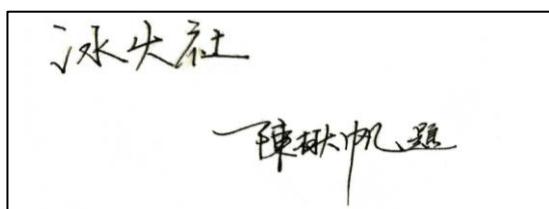 冰火社
陳楸帆題